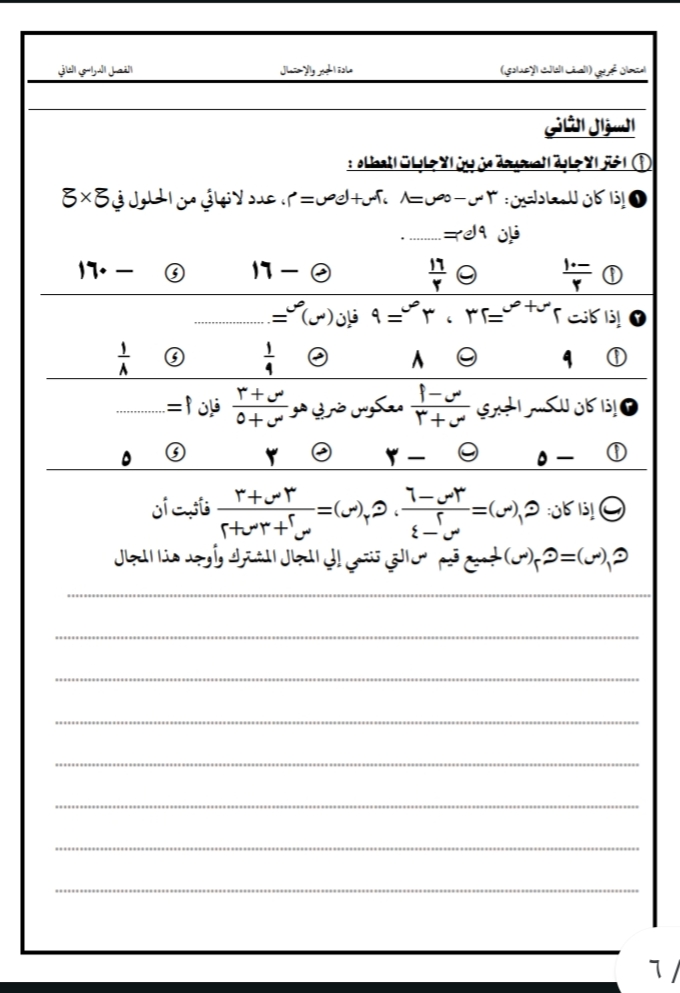 امتحان تجريبي (الصف الثالث الإعدادي) مادة الجبر والإحتمال الفصل الدراسي الثاني
السؤال الثاني
أ اختر الاجابة الصحيحة من بين الاجابات المعطاه :
١ إذا كان للمعادلتين: ٣س − ٥ص = ٨ ، ٢س + ك ص = م ، عدد لانهائي من الحلول في ح × ح
فإن ٩ك م = ......... .
أ −١٠/٣ ب ١٦/٣ جـ − ١٦ د − ١٦٠
٢ إذا كانت ٢^(س + ص) = ٣٢ ، ٣^ص = ٩ فإن (س)^ص = ....................
أ ٩ ب ٨ جـ ١/٩ د ١/٨
٣ إذا كان للكسر الجبري (س − أ)/(س + ٣) معكوس ضربي هو (س + ٣)/(س + ٥) فإن أ = ..............
أ − ٥ ب − ٣ جـ ٣ د ٥
ب إذا كان: ن١(س) = (٣س − ٦)/(س٢ − ٤) ، ن٢(س) = (٣س + ٣)/(س٢ + ٣س + ٢) فأثبت أن
ن١(س) = ن٢(س) لجميع قيم س التي تنتمي إلي المجال المشترك وأوجد هذا المجال
٦ /